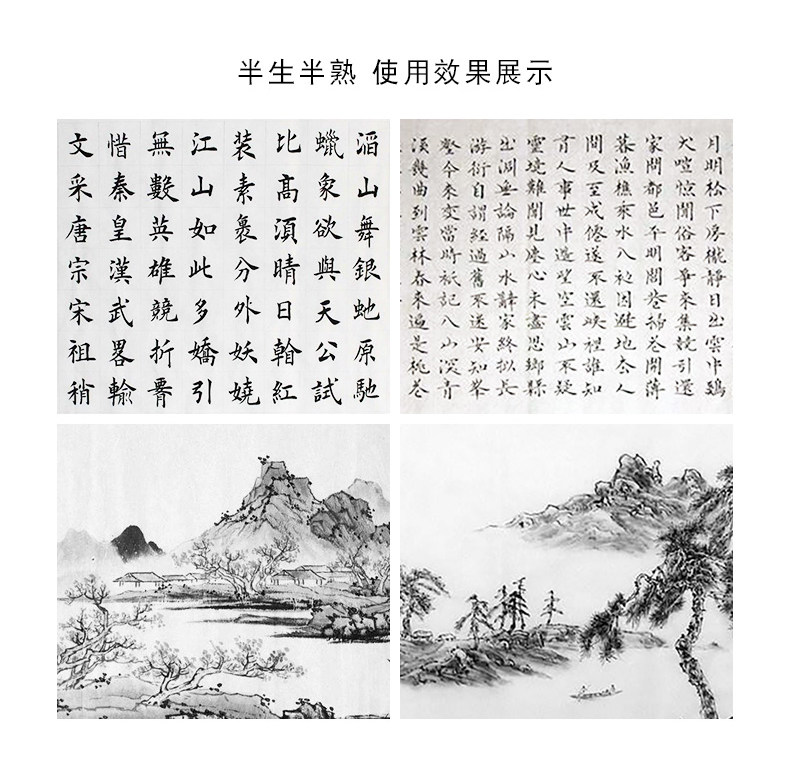 半生半熟 使用效果展示
滔山舞銀虵原馳
蠟象欲與天公試
比高須晴日翰紅
装素裹分外妖嬈
江山如此多嬌引
無數英雄競折
惜秦皇漢武畧輸
文采唐宗宋祖稍
月明松下房櫳靜日出雲中鷄
犬喧惊聞俗客爭來集競引還
家問都邑平明閭巷掃花開薄
暮漁樵乘水入初因避地去人
間及至成僊遂不還峽裡誰知
有人事世中遙望空雲山不疑
靈境難聞見塵心未盡思鄉縣
出洞無論隔山水辭家終擬長
游衍自謂經過舊不迷安知峯
壑今來變當時祇記入山深青
溪幾曲到雲林春來遍是桃花